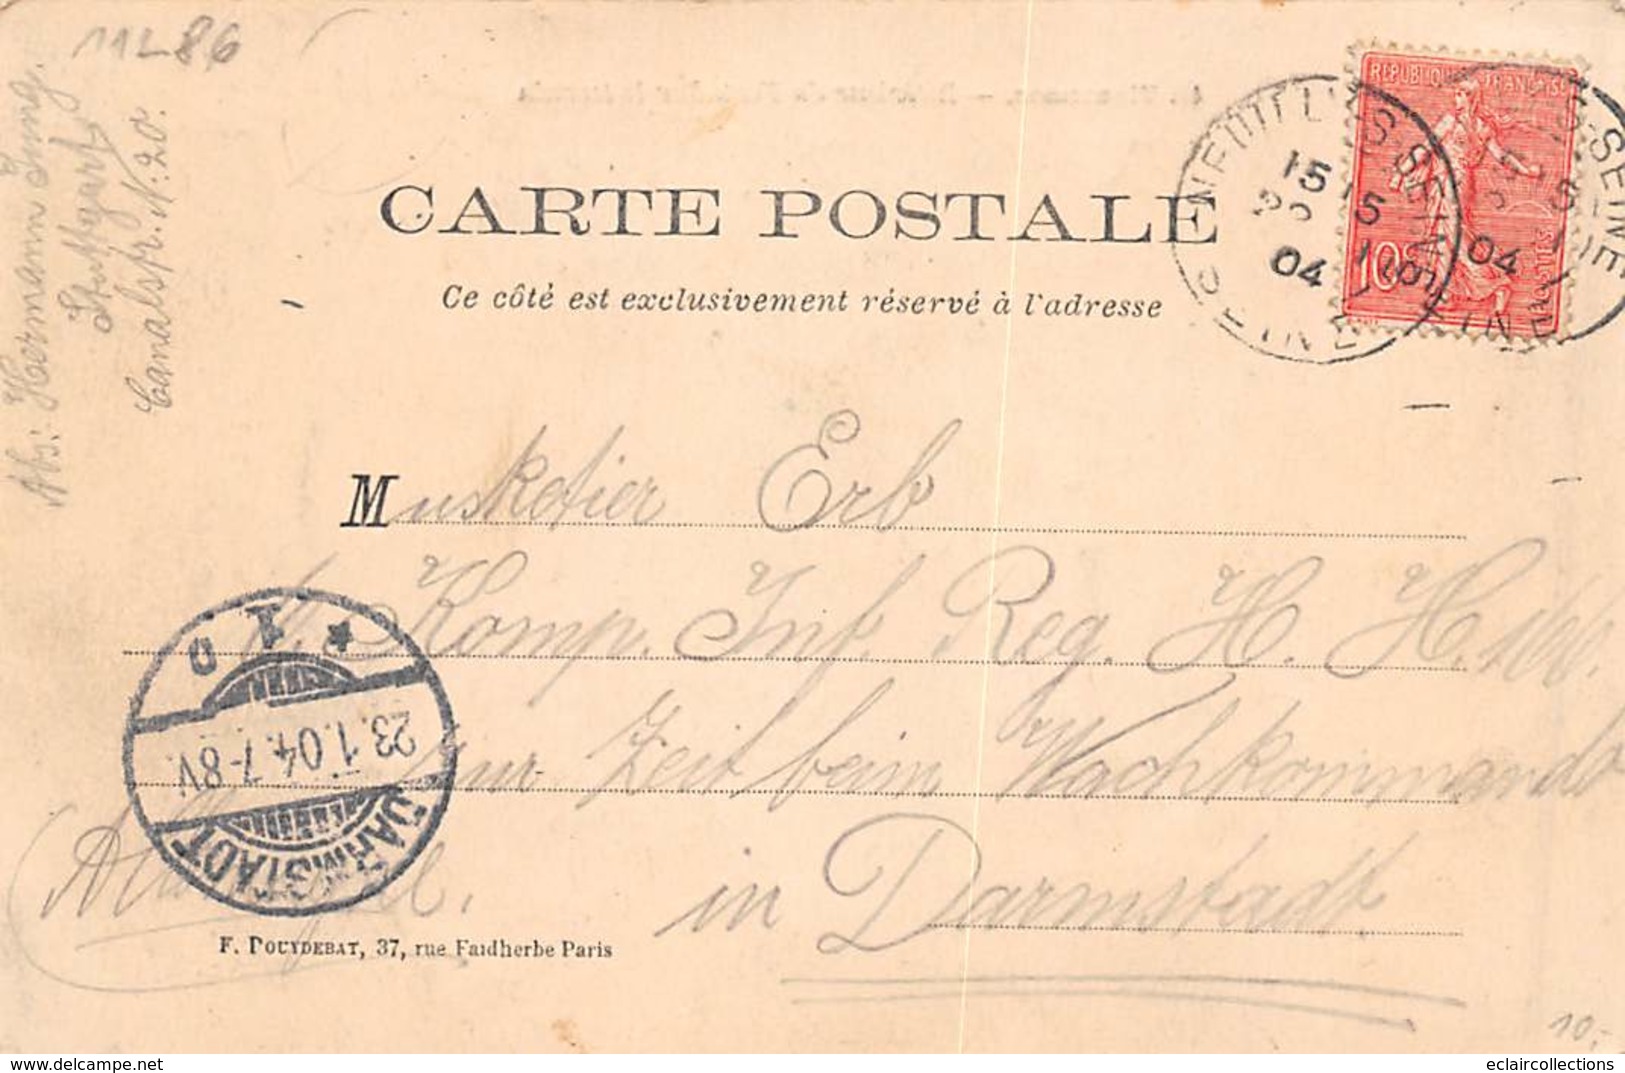 11L86
Abs: Hermann Jung.
Stuttgart
Canalstr. N: 20.
REPUBLIQUE FRANÇAISE
10c
POSTES
NEUILLY S SEINE
15
5
04
SEINE
04
CARTE POSTALE
Ce côté est exclusivement réservé à l'adresse
Musketier Erb
Komp. Inf Reg. H. H.
zur Zeit beim Wachkommando
in Darmstadt.
* 1 U
23.1.04.7-8V.
DARMSTADT
F. POUYDEBAT, 37, rue Faidherbe Paris
10.-
eclaircollections